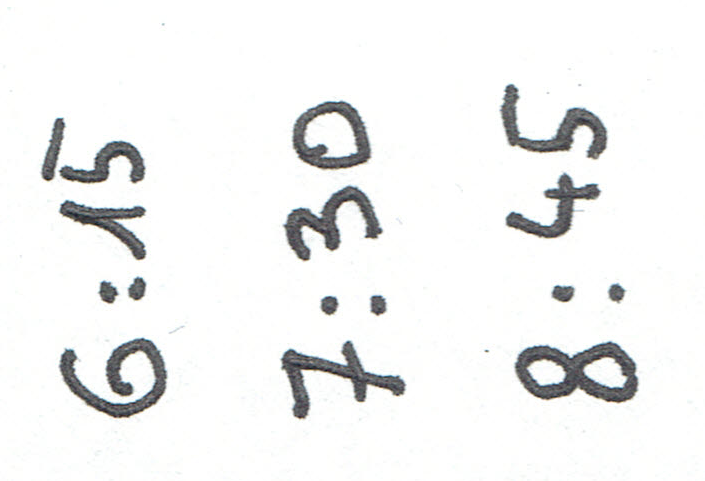 6:15
7:30
8:45